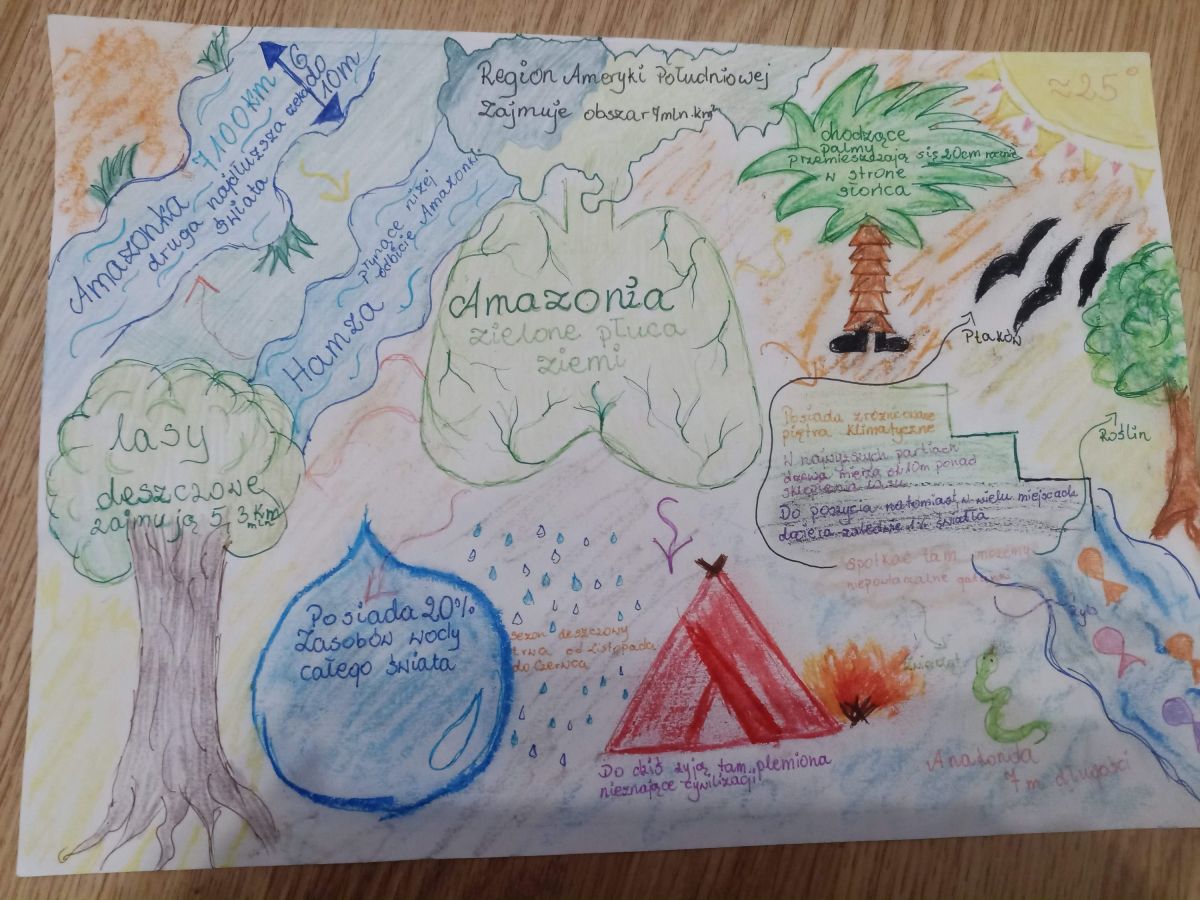 Amazonka 7100km
druga najdłuższa szeroko
świata
6
do
10m
Hamza
płynące niżej
odbicie Amazonki
Region Ameryki Południowej
Zajmuje obszar 7mln km²
chodzące
palmy
przemieszczają się 20cm rocznie
w strone
słońca
≈25°
Amazonia
zielone płuca
ziemi
Ptaków
Roślin
lasy
deszczowe
zajmują 5,3 km
mln
Posiada zróżnicowane
piętra klimatyczne
W najwyższych partiach
drzewa mierzą ok 10m ponad
sklepienie
Do poszycia natomiast w wielu miejscach
dociera zaledwie 1% światła
spotkać tam możemy
niepowtarzalne gatunki
ryb
zwierząt
Posiada 20%
Zasobów wody
całego świata
sezon deszczowy
trwa od listopada
do czerwca
Do dziś żyją tam plemiona
nieznające cywilizacji
Anakonda
7 m długości